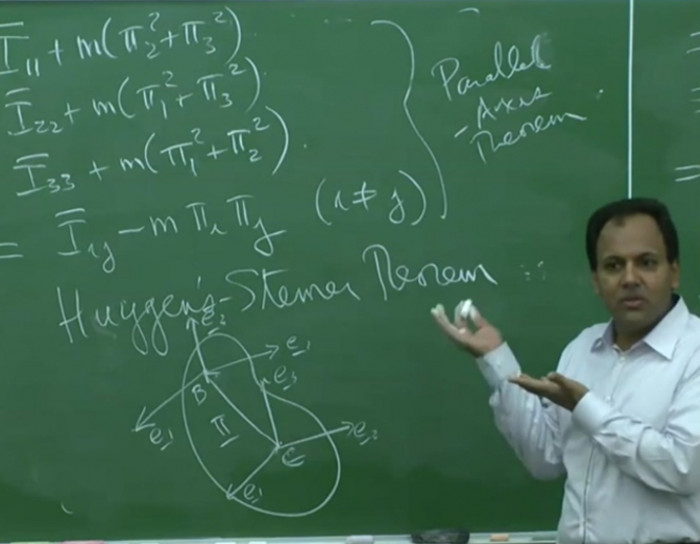 Ī₁₁ + m(π₂² + π₃²)
Ī₂₂ + m(π₁² + π₃²)
Ī₃₃ + m(π₁² + π₂²).
= Ī_ij − m π_i π_j (i ≠ j)
Parallel
- Axis
Theorem
Huygen's-Steiner Theorem
e₂
e₁
e₃
B
π
e₁
C
e₂
e₁